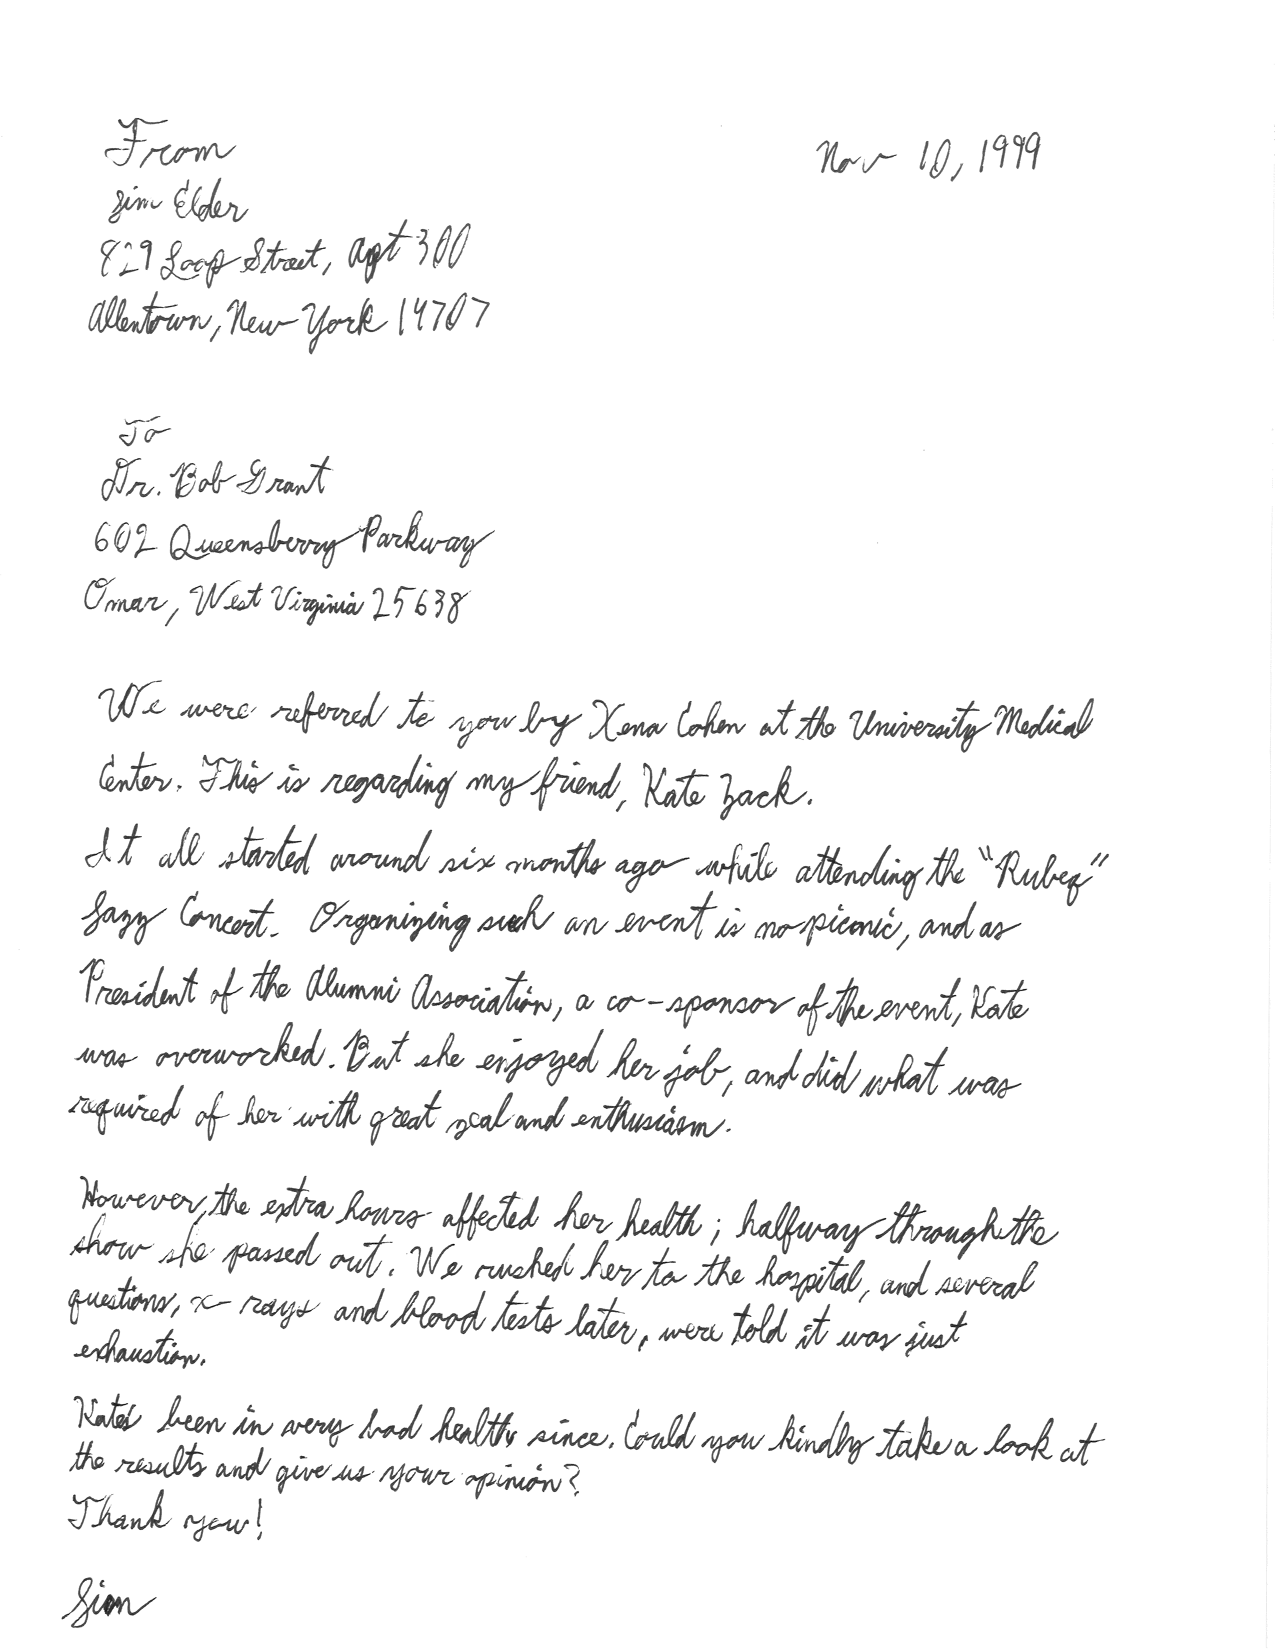 From
Nov 10, 1999
Jim Elder
829 Loop Street, Apt 300
Allentown, New York 14707
To
Dr. Bob Grant
602 Queensberry Parkway
Omar, West Virginia 25638
We were referred to you by Xena Cohen at the University Medical
Center. This is regarding my friend, Kate Zack.
It all started around six months ago while attending the "Rubeq"
Jazz Concert. Organizing such an event is no piconic, and as
President of the Alumni Association, a co-sponsor of the event, Kate
was overworked. But she enjoyed her job, and did what was
required of her with great zeal and enthusiasm.
However, the extra hours affected her health; halfway through the
show she passed out. We rushed her to the hospital, and several
questions, x-rays and blood tests later, were told it was just
exhaustion.
Kate's been in very bad health since. Could you kindly take a look at
the results and give us your opinion?
Thank you!
Jim